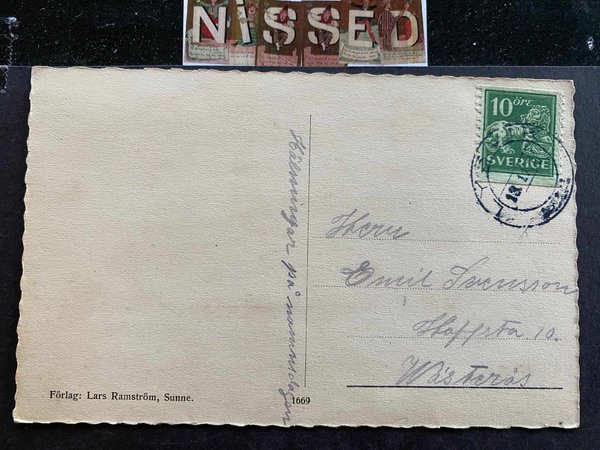 NISSED
10 ÖRE
SVERIGE
Hälsningar på namnsdagen
Herr
Emil Svensson
Hoffsta 10.
Wästerås
Förlag: Lars Ramström, Sunne.
1669